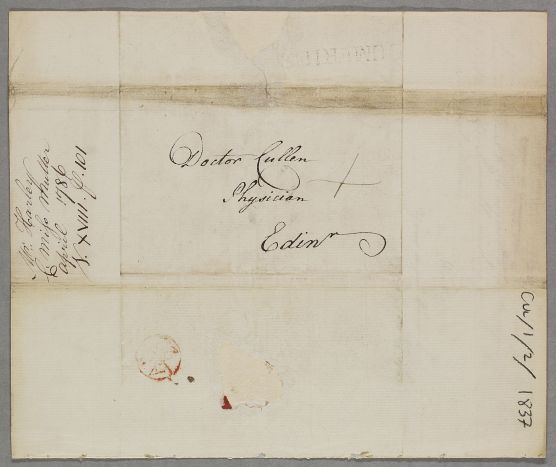 Doctor Cullen
Physician
Edinr
Mr Harley
C Miss Muller
April 1786
V. XVIII. ff. 101
Cul/1/2/1837